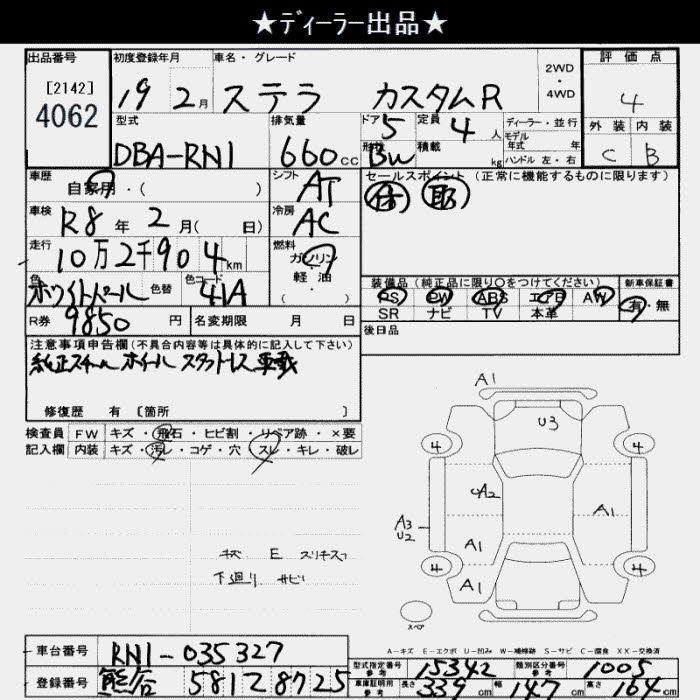 ★ディーラー出品★
出品番号 初度登録年月 車名・グレード 2WD・4WD 評価点
[2142]
4062
19年2月 ステラ カスタムR 4
型式 排気量 ドア 定員 ディーラー・並行
DBA-RN1 660cc 5 4人
モデル年式 年
形状 BW 積載 kg ハンドル 左・右
外装 内装
C B
車歴 自家用・( ) シフト AT
セールスポイント(正常に機能するものに限ります)
車検 R8年2月( 日) 冷房 AC
走行 10万2千904km 燃料 ガソリン・軽・油・( )
色 ホワイトパール 色替 色コード 41A
装備品(純正品に限り○をつけてください) 新車保証書
PS PW ABS エアB AW 有・無
SR ナビ TV 本革
R券 9850円 名変期限 月 日
後日品
注意事項申告欄(不具合内容等は具体的に記入して下さい)
純正スチールホイール スタットレス車載
修復歴 有 〔箇所 〕
検査員 FW キズ・飛石・ヒビ割・リペア跡・×要
記入欄 内装 キズ・汚レ・コゲ・穴・スレ・キレ・破レ
A1
U3
4 4
A2
A3
U2
A1
A1
4 4
A1
キズ E スリキズ
下廻り サビ
スペア
A-キズ E-エクボ U-凹み W-補修跡 S-サビ C-腐食 XX-交換済
車台番号 RN1-035327
型式指定番号 参考 15342 類別区分番号 参考 1005
登録番号 熊谷 581 な 8725
車庫証明用 参考 長さ 339cm 幅 147cm 高さ 164cm